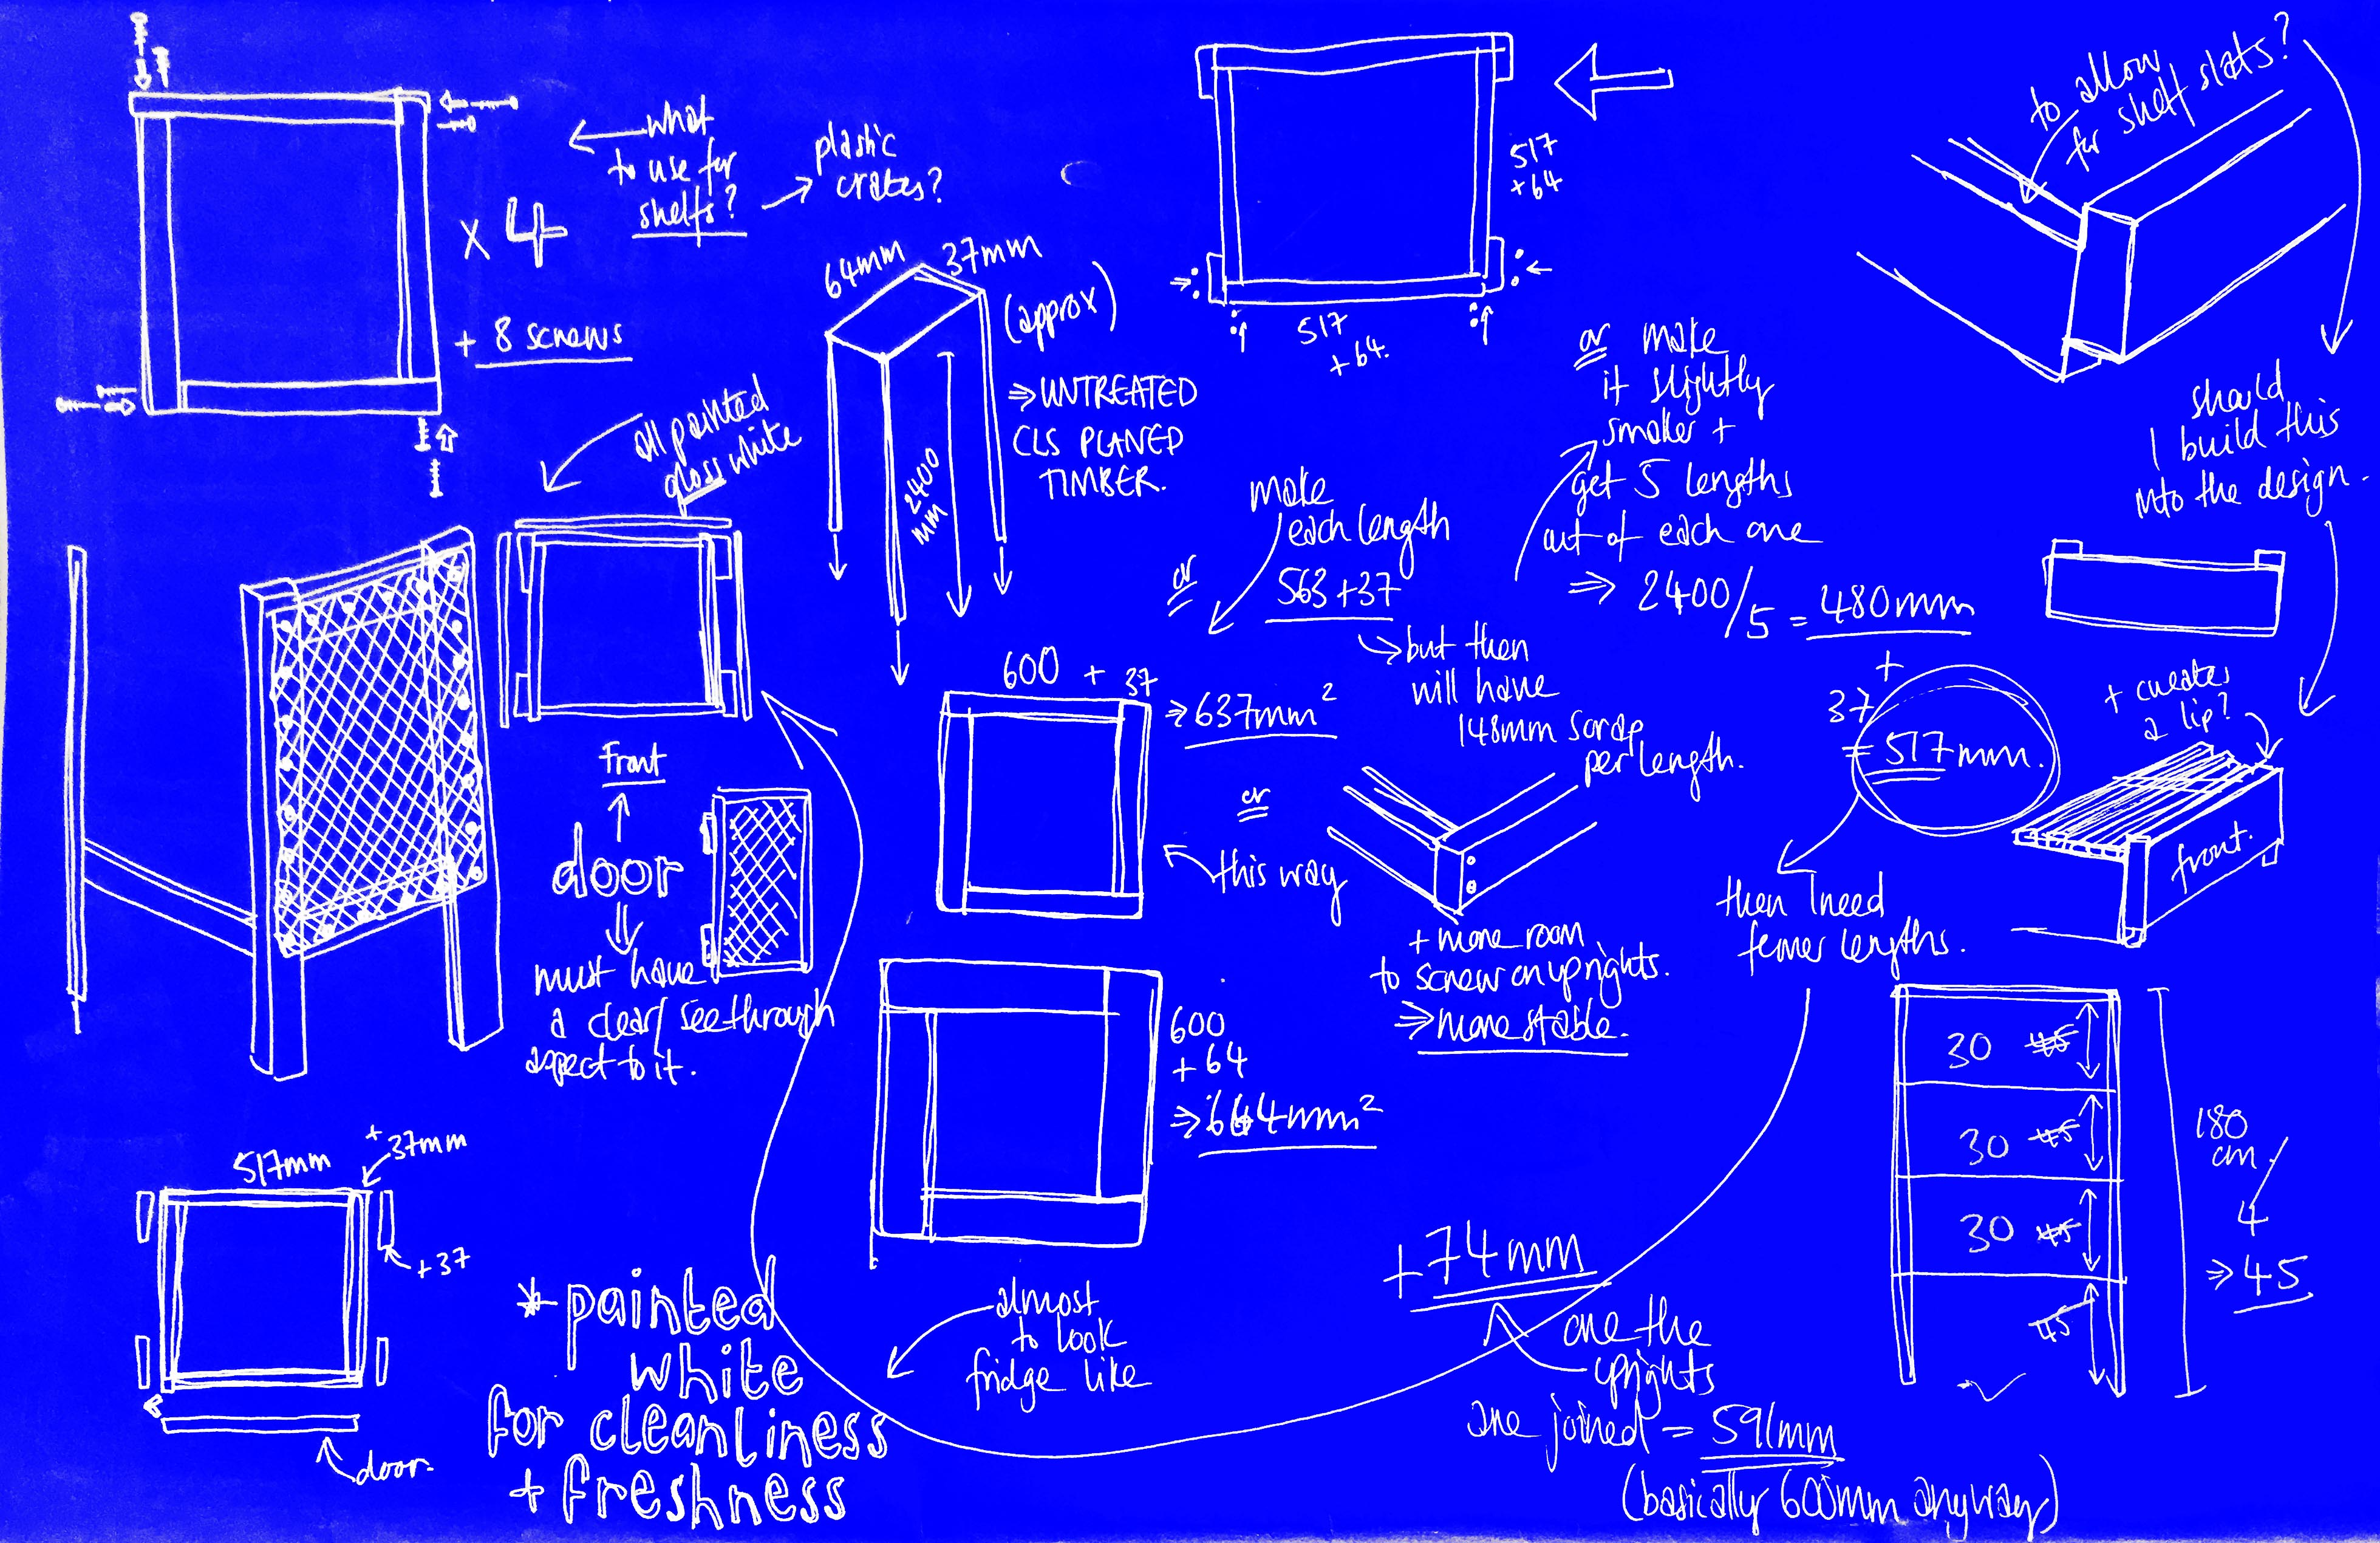 what
to use for
shelfs?
plastic
crates?
x 4
+ 8 screws
64mm
37mm
(approx)
2400
mm
⇒ UNTREATED
CLS PLANED
TIMBER.
517
+64
517
+64.
to allow
for shelf slats?
should
I build this
into the design.
or make
it slightly
smaller +
get 5 lengths
out of each one
⇒ 2400/5 = 480mm
+
37
= 517mm.
then I need
fewer lengths.
+ creates
a lip?
front.
all painted
gloss white
front
door
must have
a clear/seethrough
aspect to it.
or
make
each length
563+37
but then
will have
148mm scrap
per length.
600 + 37
⇒ 637mm²
or
this way
+ more room
to screw on uprights.
⇒ more stable.
600
+ 64
⇒ 664mm²
30 45
30 45
30 45
45
180
cm
4
⇒ 45
517mm
+
37mm
+37
door.
* painted
white
for cleanliness
+ freshness
almost
to look
fridge like
+74mm
one the
uprights
are joined = 591mm
(basically 600mm anyway)